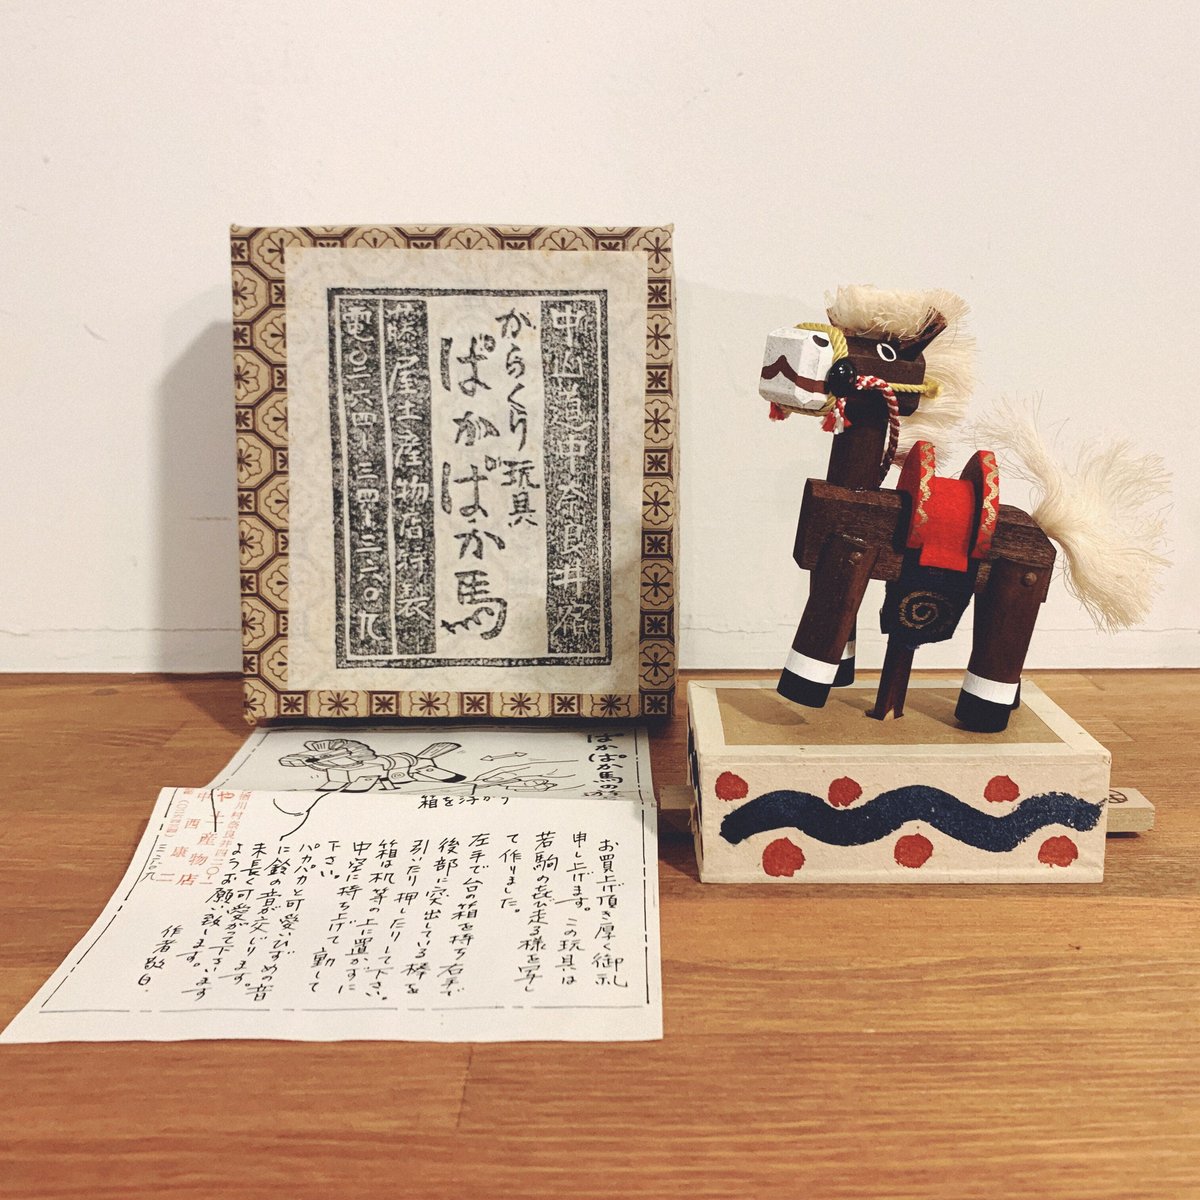 中山道中奈良井宿
からくり玩具
ぱかぱか馬
屋土産物店謹製
電〇二六四－三四－三二〇九
ぱかぱか馬の遊
箱を浮かう
お買上げ頂き厚く御礼
申し上げます。この玩具は
若駒の㐂び走る様を写し
て作りました。
左手で台の箱を持ち右手で
後部に突出している棒を
引いたり押したりして下さい。
箱は机等の上に置かずに
中空に持ち上げて動して
下さい。
パカパカと可愛いひずめの音
に鈴の音が交じります。
末長く可愛がって下さいます
ようお願い致します。
作者敬白.
川村奈良井四二〇ノ一
や土産物店
中西康二
三二〇九